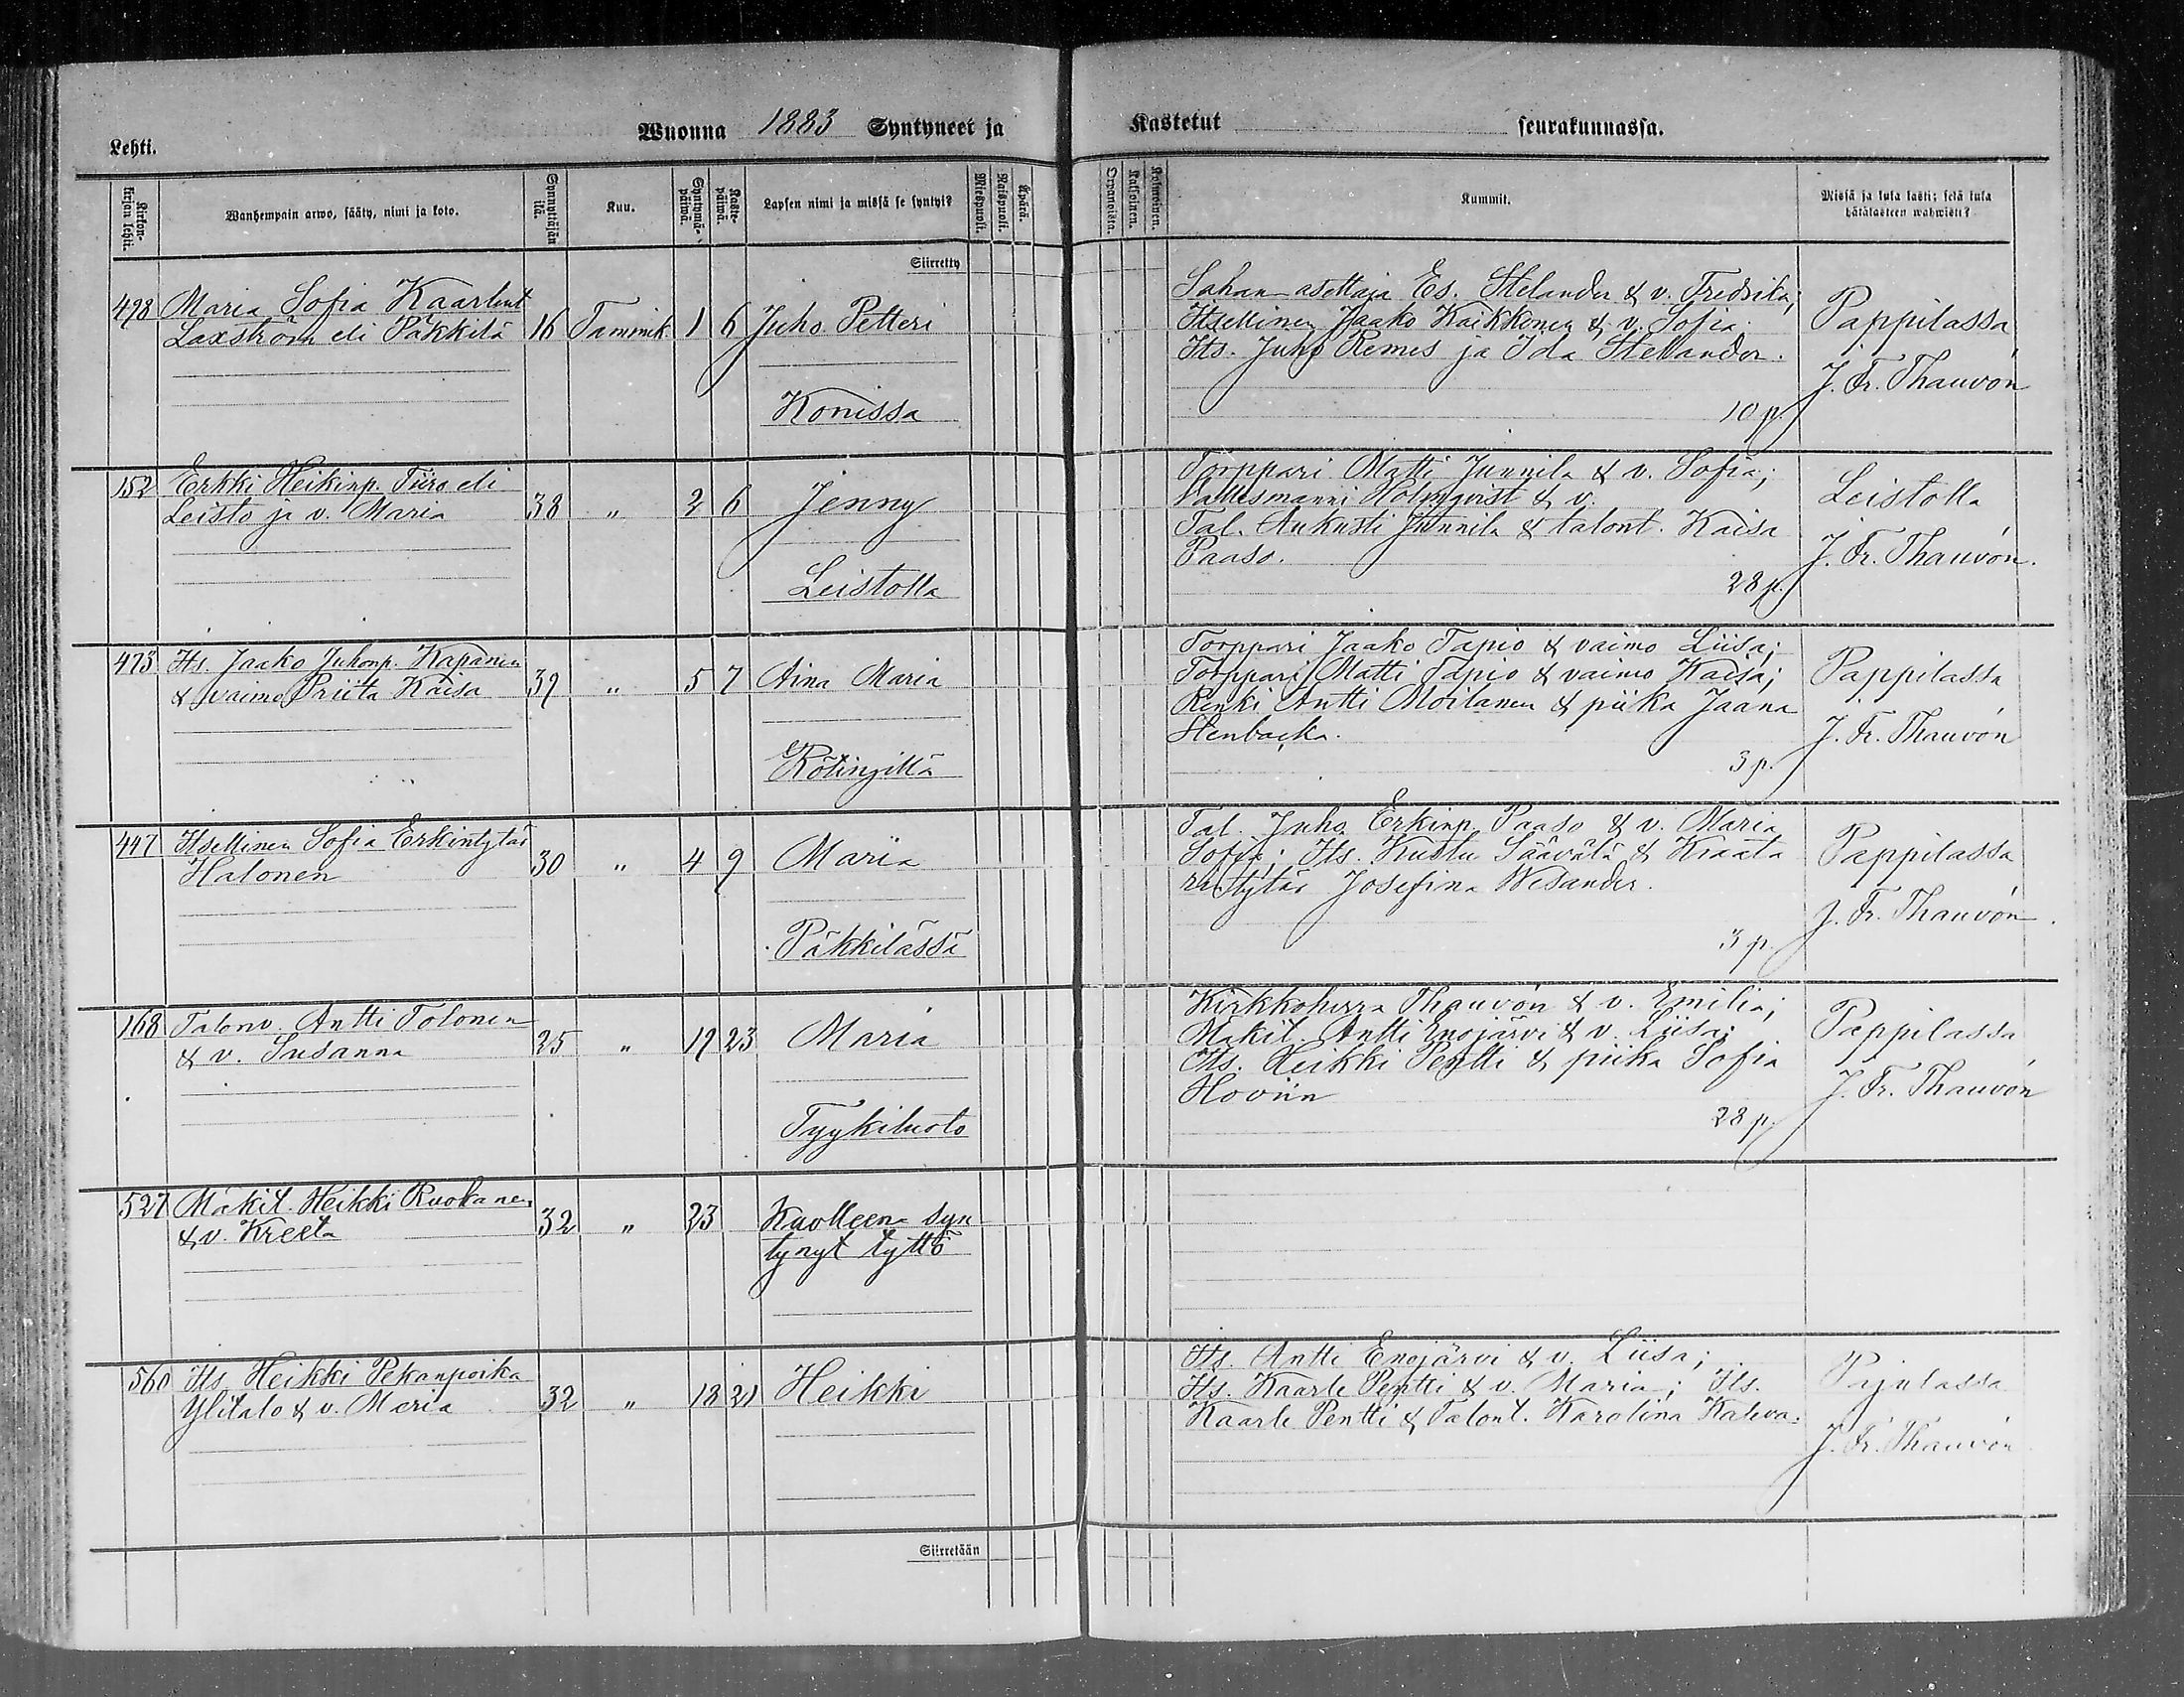 Lehti.
Wuonna 1883 Syntyneet ja Kastetut seurakunnassa.
Kirkonkirjan lehti.
Wanhempain arwo, sääty, nimi ja koto.
Synnyttäjän ikä.
Kuu.
Syntymäpäiwä.
Kastepäiwä.
Lapsen nimi ja missä se syntyi?
Miespuoli.
Waispuoli.
Äpärä.
Kummit.
Missä ja kuka kasti; sekä kuka hätäkasteen wahwisti?
Siirretty
498 Maria Sofia Kaarlent
Laxström eli Päkkilä 16 Tammik. 1 6 Juho Petteri
Konissa
Sahan asettaja Es. Stelander & v. Fredrika;
Itsellinen Jaako Kaikkonen & v. Sofia.
Its. Juho Remes ja Ida Stelander.
10 p.
Pappilassa
J. Fr. Thauvón
152 Erkki Heikinp. Tiiro eli
Leisto ja v. Maria 38 " 2 6 Jenny
Leistolla
Torppari Matti Junnila & v. Sofia;
Vallesmanni Holmqvist & v.
Tal. Aukusti Junnila & talont. Kaisa
Paaso.
28 p.
Leistolla
J. Fr. Thauvón.
473 Its. Jaako Juhonp. Kapanen
& vaimo Priita Kaisa 39 " 5 7 Aina Maria
Torppari Jaako Tapio & vaimo Liisa;
Torppari Matti Tapio & vaimo Kaisa;
Renki Antti Moilanen & piika Jaana
Stenbacka.
3 p.
Pappilassa
J. Fr. Thauvón
447 Itsellinen Sofia Erkintytär
Halonen 30 " 4 9 Maria
Päkkilässä
Tal. Juho Erkinp. Paaso & v. Maria
Sofia; Its. Kustu Säävälä & Kraata
rintytär Josefina Wesander.
3 p.
Pappilassa
J. Fr. Thauvón.
168 Talonv. Antti Tolonen
& v. Susanna 25 " 19 23 Maria
Tyykiluoto
Kirkkoherra Thauvón & v. Emilia;
Mäkit. Antti Enojärvi & v. Liisa;
Its. Heikki Pentti & piika Sofia
Hoviin
28 p.
Pappilassa
J. Fr. Thauvón
527 Mäkit. Heikki Ruokanen
& v. Kreeta 32 " 23 Kuolleena syn
tynyt tyttö
560 Its Heikki Pekanpoika
Ylitalo & v. Maria 32 " 18 21 Heikki
Its. Antti Enojärvi & v. Liisa;
Its. Kaarle Pentti & v. Maria; Its.
Kaarle Pentti & Talont. Karolina Kaleva.
Pajulassa
J. Fr. Thauvón
Siirretään